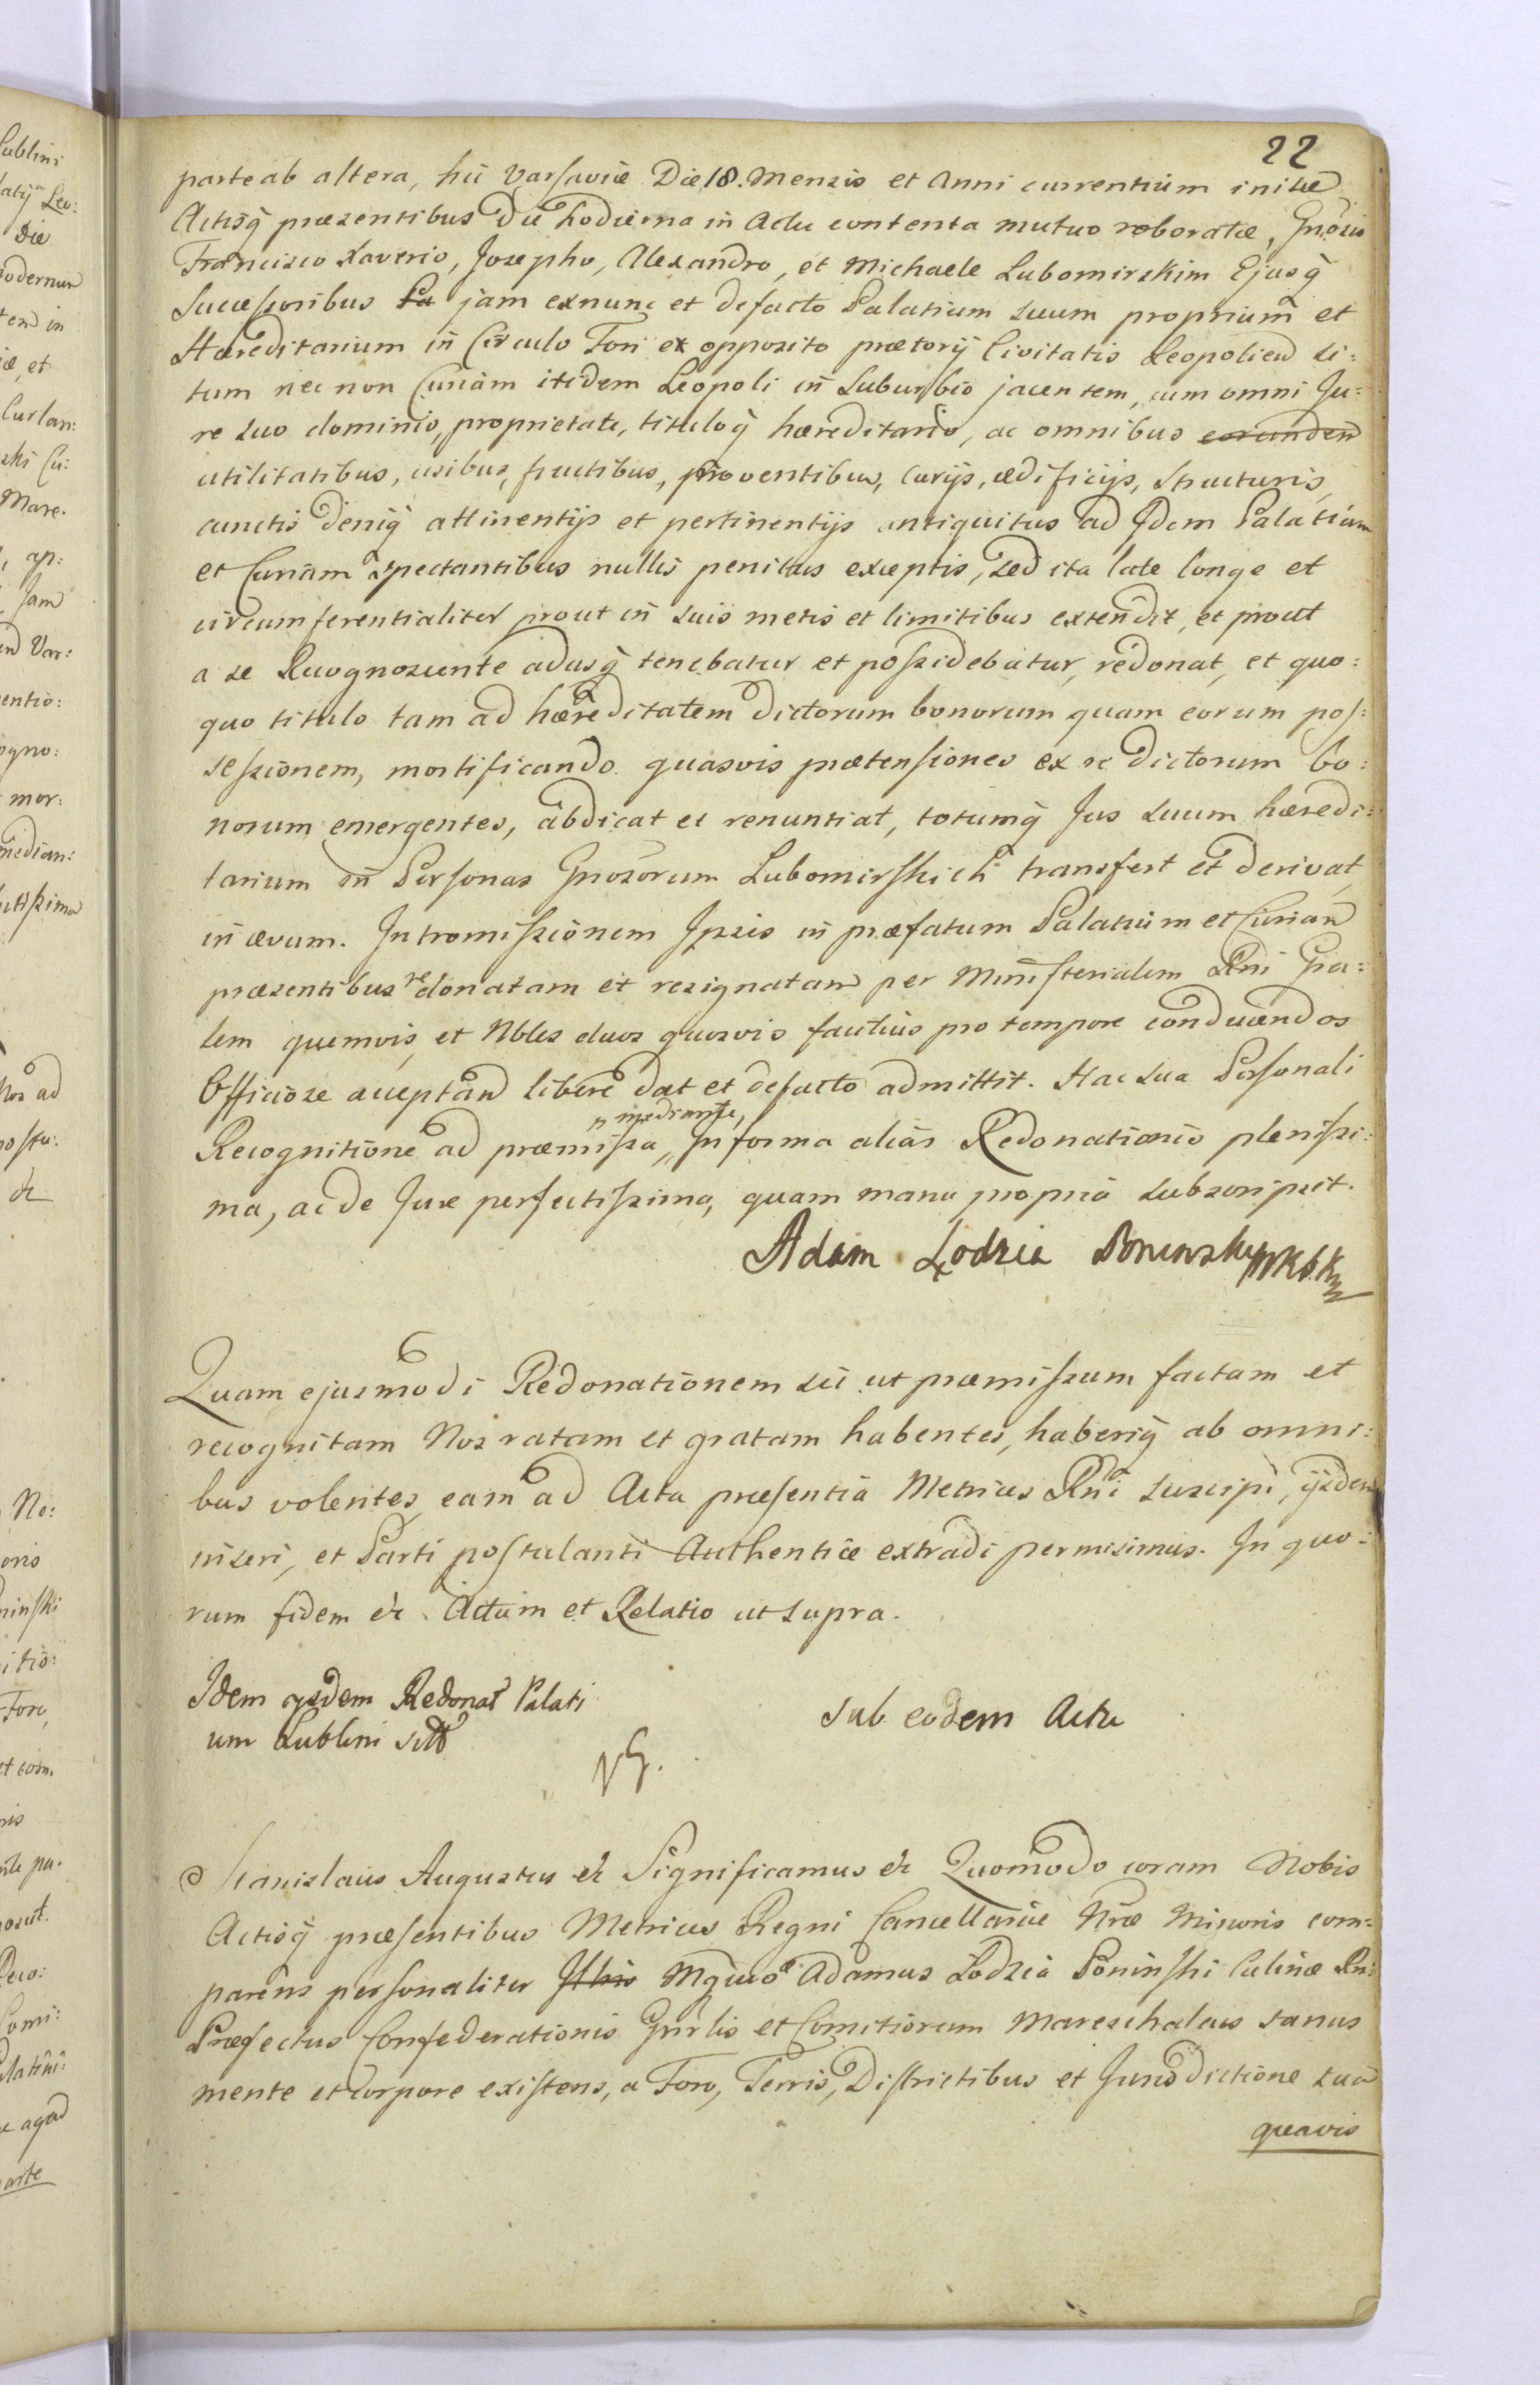 22
parte ab altera, hic Varsaviæ Die 18. Mensis et Anni currentium initæ
Actisq̃ præsentibus die hodierna in Actu contenta mutuo roboratæ, Gñosis
Francisco Xaverio, Josepho, Alexandro, et Michaele Lubomirskim Ejusq̃
Successoribus jam exnunc et defacto Palatium suum proprium et
Hæreditarium in Circulo Fori ex opposito prætorij Civitatis Leopolien si:
tum nec non Curiam itidem Leopoli in Suburbio jacentem, cum omni Ju:
re suo dominio, proprietate, tituloq̃ hæreditario, ac omnibus eorundem
utilitatibus, usibus, fructibus, proventibus, curijs, ædificijs, structuris,
cunctis deniq̃ attinentijs et pertinentijs antiquitus ad Idem Palatium
et Curiam spectantibus nullis penitus exceptis, sed ita late longe et
circumferentialiter prout in suis metis et limitibus extendit, et prout
a se Recognoscente adusq̃ tenebatur et possidebatur, redonat, et quo:
quo titulo tam ad hæreditatem dictorum bonorum quam eorum pos:
sessionem, mortificando quasvis prætensiones ex re dictorum bo:
norum emergentes, abdicat et renuntiat, totumq̃ Jus suum hæredi:
tarium in Personas Gnosorum Lubomirskich transfert et derivat
in ævum. Intromissionem Ipsis in præfatum Palatium et Curiam
præsentibus redonatam et resignatam per Ministerialem Rñi Gña:
lem quemvis, et Nbles duos quosvis factius pro tempore conducendos
Officiose acceptan libere dat et defacto admittit. Hac sua Personali
mediante,
Recognitione ad præmissa, In forma alias Redonationis plenissi:
ma, ac de Jure perfectissima, quam manu propria subscripsit.
Adam Łodzia Poninsky
Quam ejusmodi Redonationem sic ut præmissum factam et
recognitam Nos ratam et gratam habentes, haberiq̃ ab omni:
bus volentes, eam ad Acta præsentia Metrices Rñi suscipi, ijsdem
inseri, et Parti postulanti Authentice extradi permisimus. In quo:
rum fidem &c. Actum et Relatio ut supra.
Idem ijsdem Redonat Palati
um Lublini sitt
sub eodem Actu
Stanislaus Augustus &c Significamus &c Quomodo coram Nobis
Actisq̃ præsentibus Metrices Regni Cancellariæ Nræ Minoris com:
parens personaliter Mgñcus Adamus Łodzia Poninski Culinæ Rñi
Præfectus Confederationis Gñrlis et Comitiorum Mareschalcus sanus
mente et corpore existens, a Foro, Terris, Districtibus et Jurisdictione sua
quavis